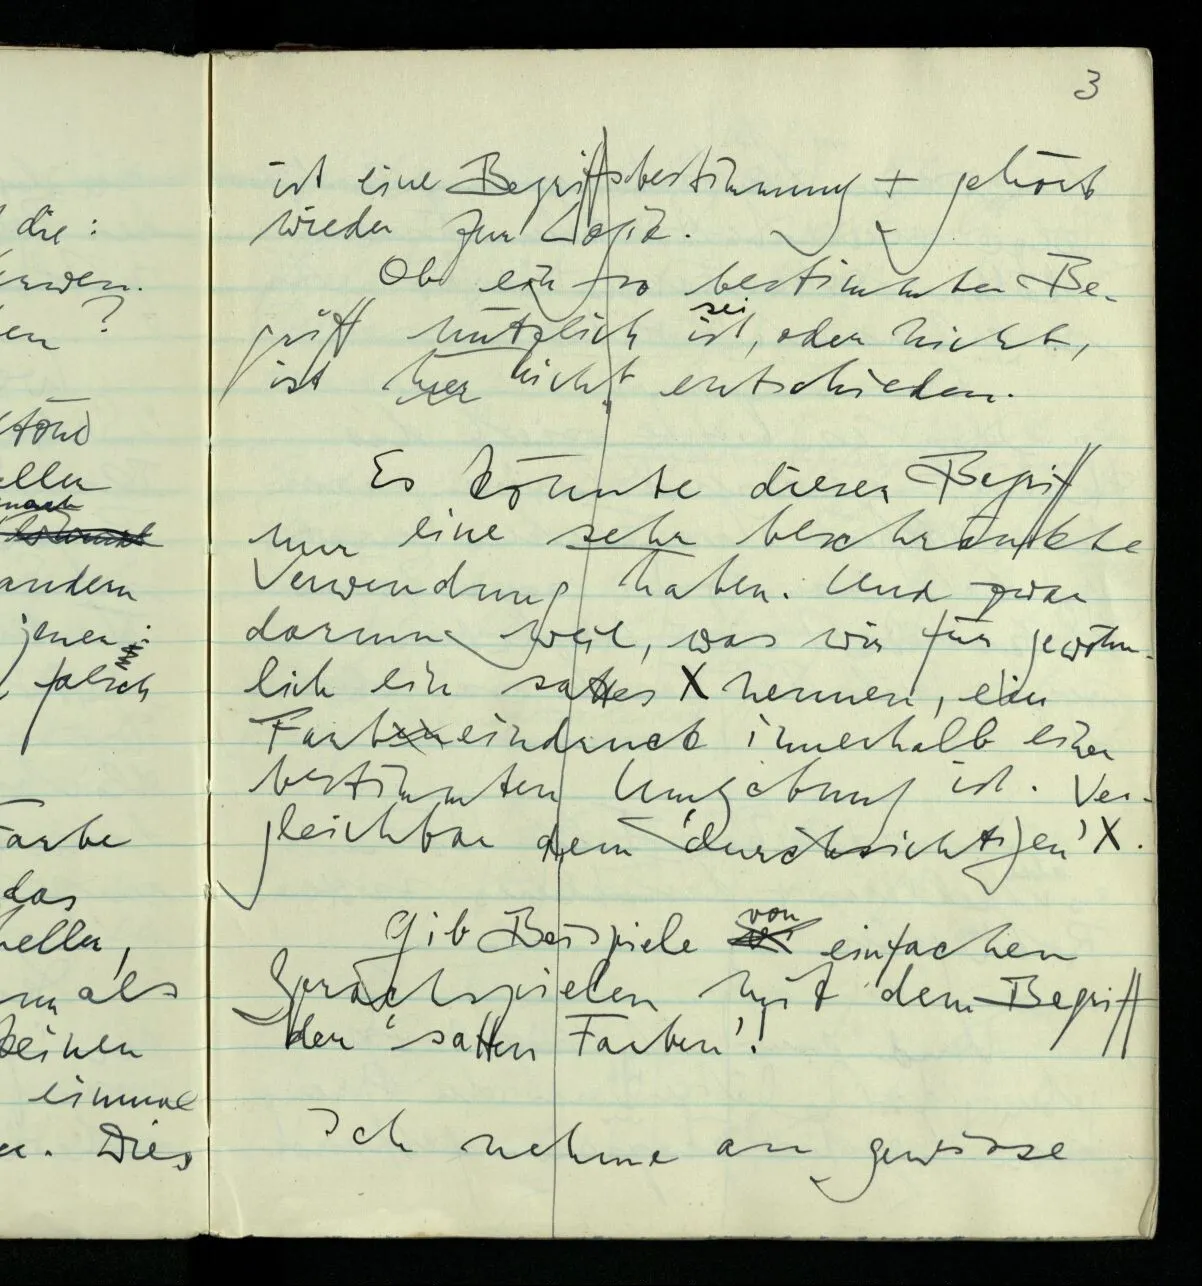 3
die :
?
ist eine Begriffsbestimmung + gehört
wieder zur Logik.
Ob ein so bestimmter Be-
griff nützlich ist, oder nicht,
sei
ist hier nicht entschieden.
Es könnte dieser Begriff
nur eine sehr beschränkte
Verwendung haben. Und zwar
darum weil, was wir für gewöhn-
lich ein sattes X nennen, ein
Farbeindruck innerhalb einer
bestimmten Umgebung ist. Ver-
gleichbar dem 'durchsichtigen' X.
Gib Beispiele von einfachen
Sprachspielen mit dem Begriff
der 'satten Farben'!
Ich nehme an gewisse
andern
jener
falsch
Farbe
das
heller,
als
keinen
einmal
Dies